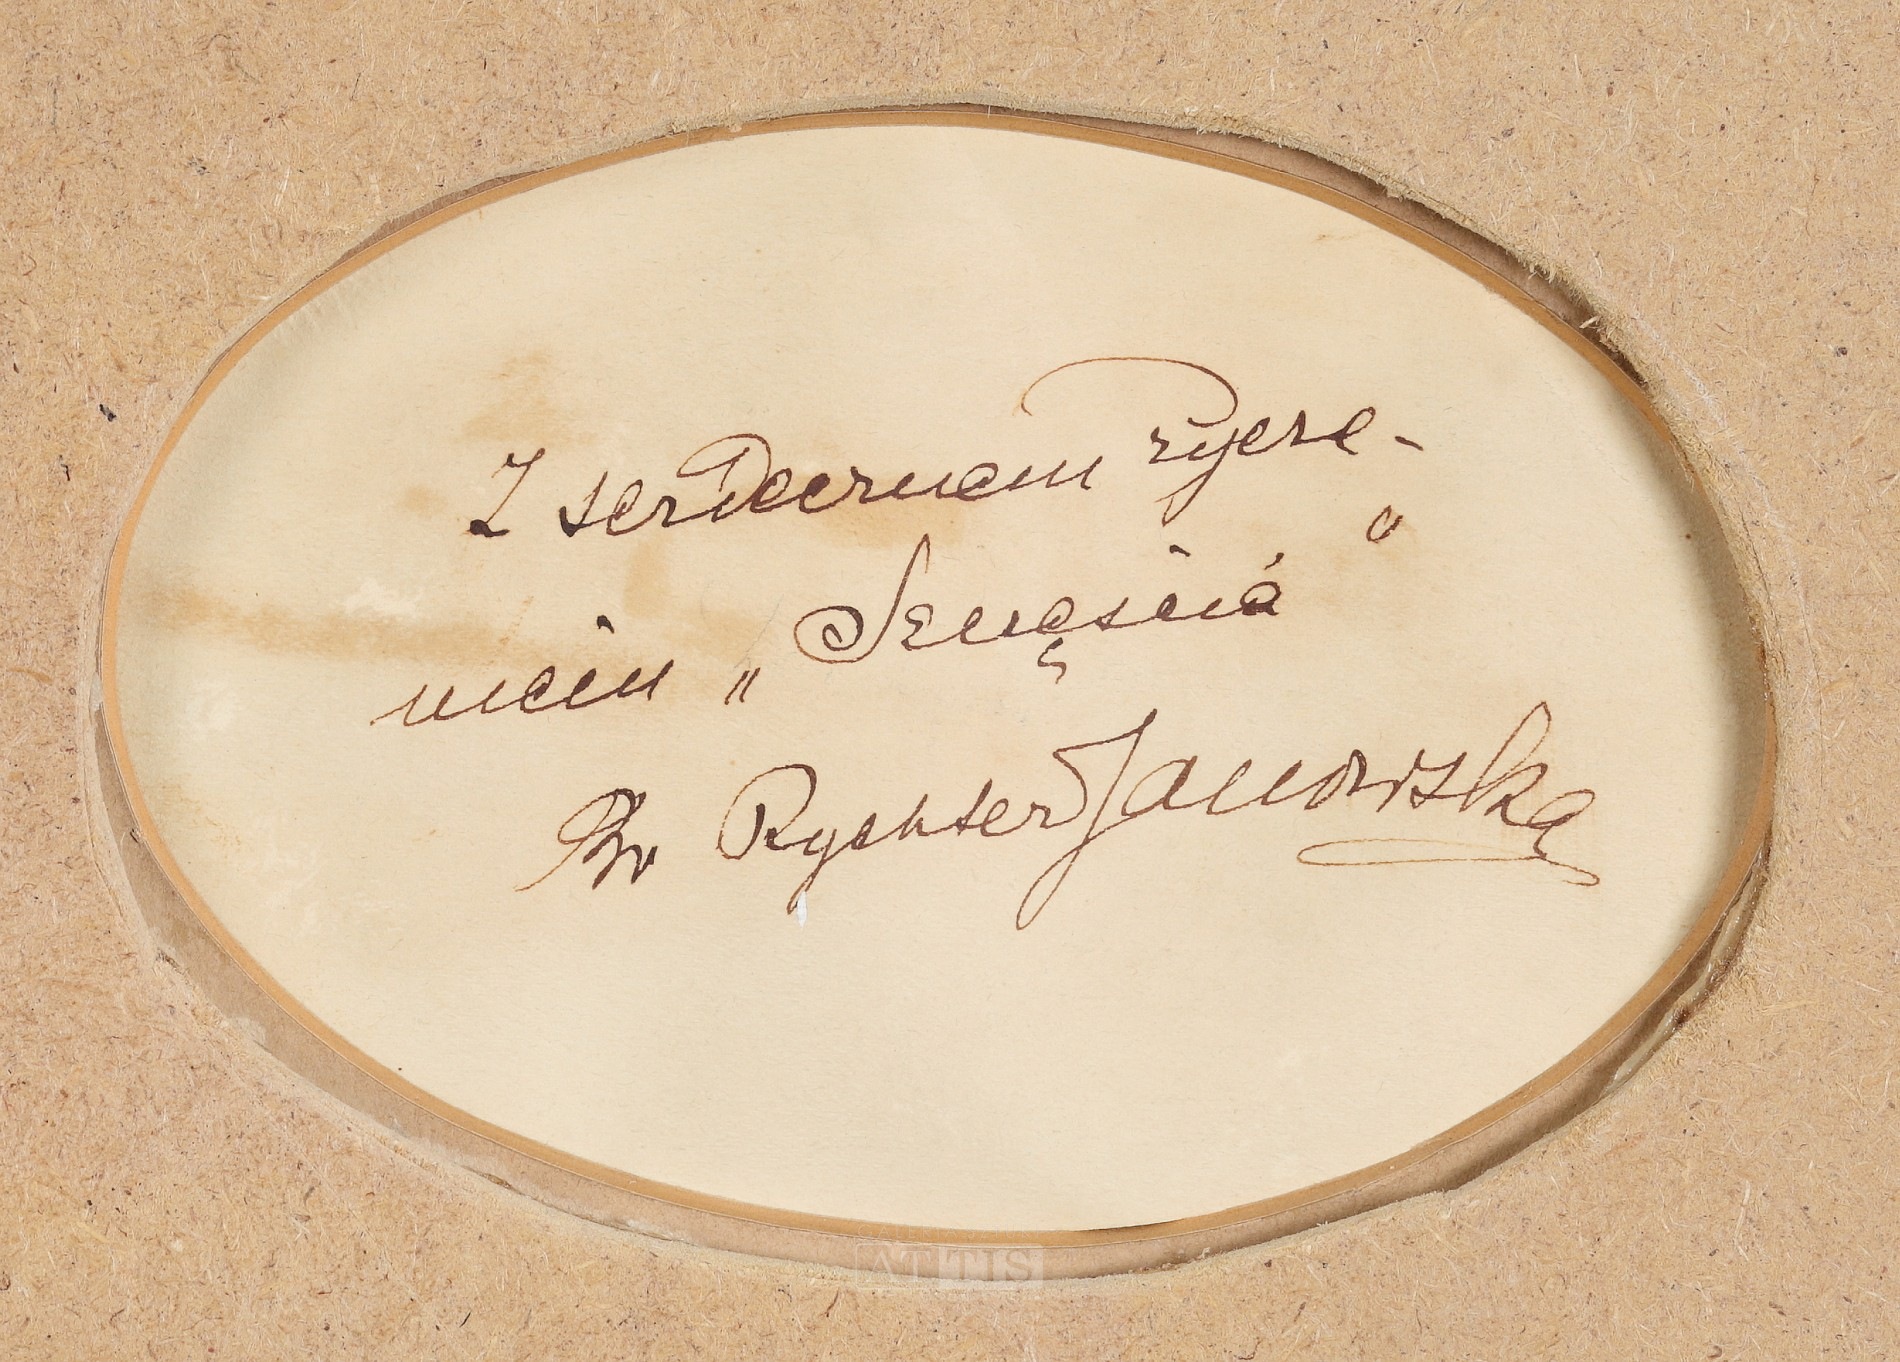 Z serdecznem życze-
niem „Szczęścia"
Br Rychter Janowska
ATTIS